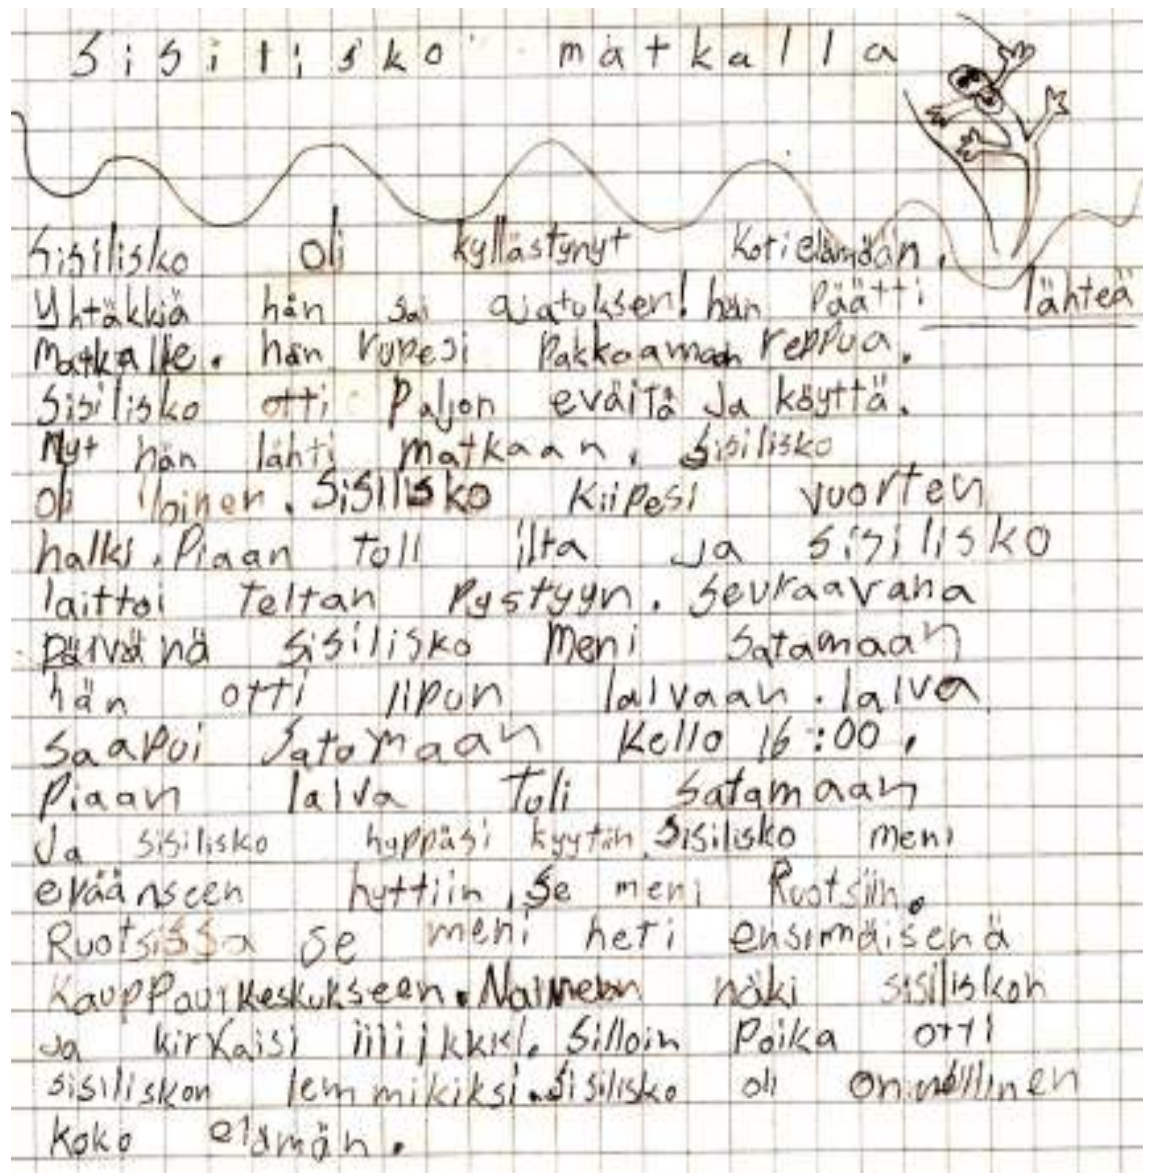 sisilisko matkalla
Sisilisko oli kyllästynyt kotielämään.
Yhtäkkiä hän sai ajatuksen! hän päätti lähteä
matkalle. hän rupesi pakkaamaan reppua.
Sisilisko otti paljon eväitä ja köyttä.
Nyt hän lähti matkaan. Sisilisko
oli iloinen. Sisilisko kiipesi vuorten
halki. Piaan toli ilta ja sisilisko
laittoi teltan pystyyn. seuraavana
päivänä sisilisko meni satamaan
hän otti lipun laivaan. laiva
saapui satamaan kello 16:00.
Piaan laiva toli satamaan
ja sisilisko hyppäsi kyytiin. Sisilisko meni
eväänseen hyttiin. Se meni Ruotsiin.
Ruotsissa se meni heti ensimäisenä
kauppaurkeskukseen. Nainen näki sisiliskon
ja kirkaisi iiiijkkk!. Silloin poika otti
sisiliskon lemmikiksi. Sisilisko oli onnellinen
koko elämän.